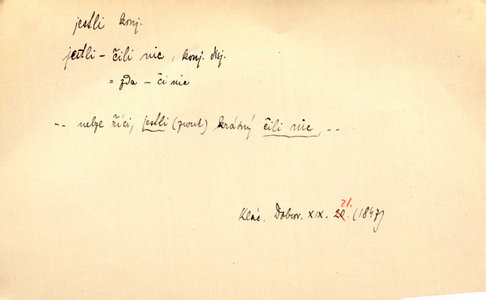 jestli konj.
jestli – čili nic, konj. dtj.
= zda – či nic
-- nelze říci, jestli (zvuk) krátký čili nic, --
Klác. Dobrov. XIX. 21. (1847)